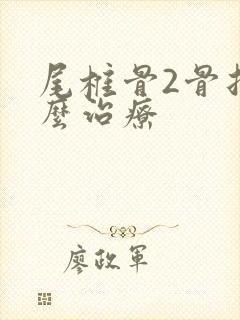 尾椎骨2骨折
麼治療
廖政軍